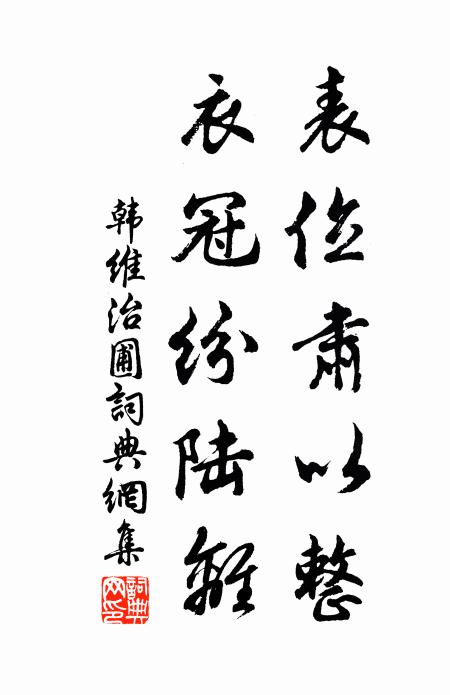 表位肅以整
衣冠纷陆離
韩维治圃詞典網集
詞典网印